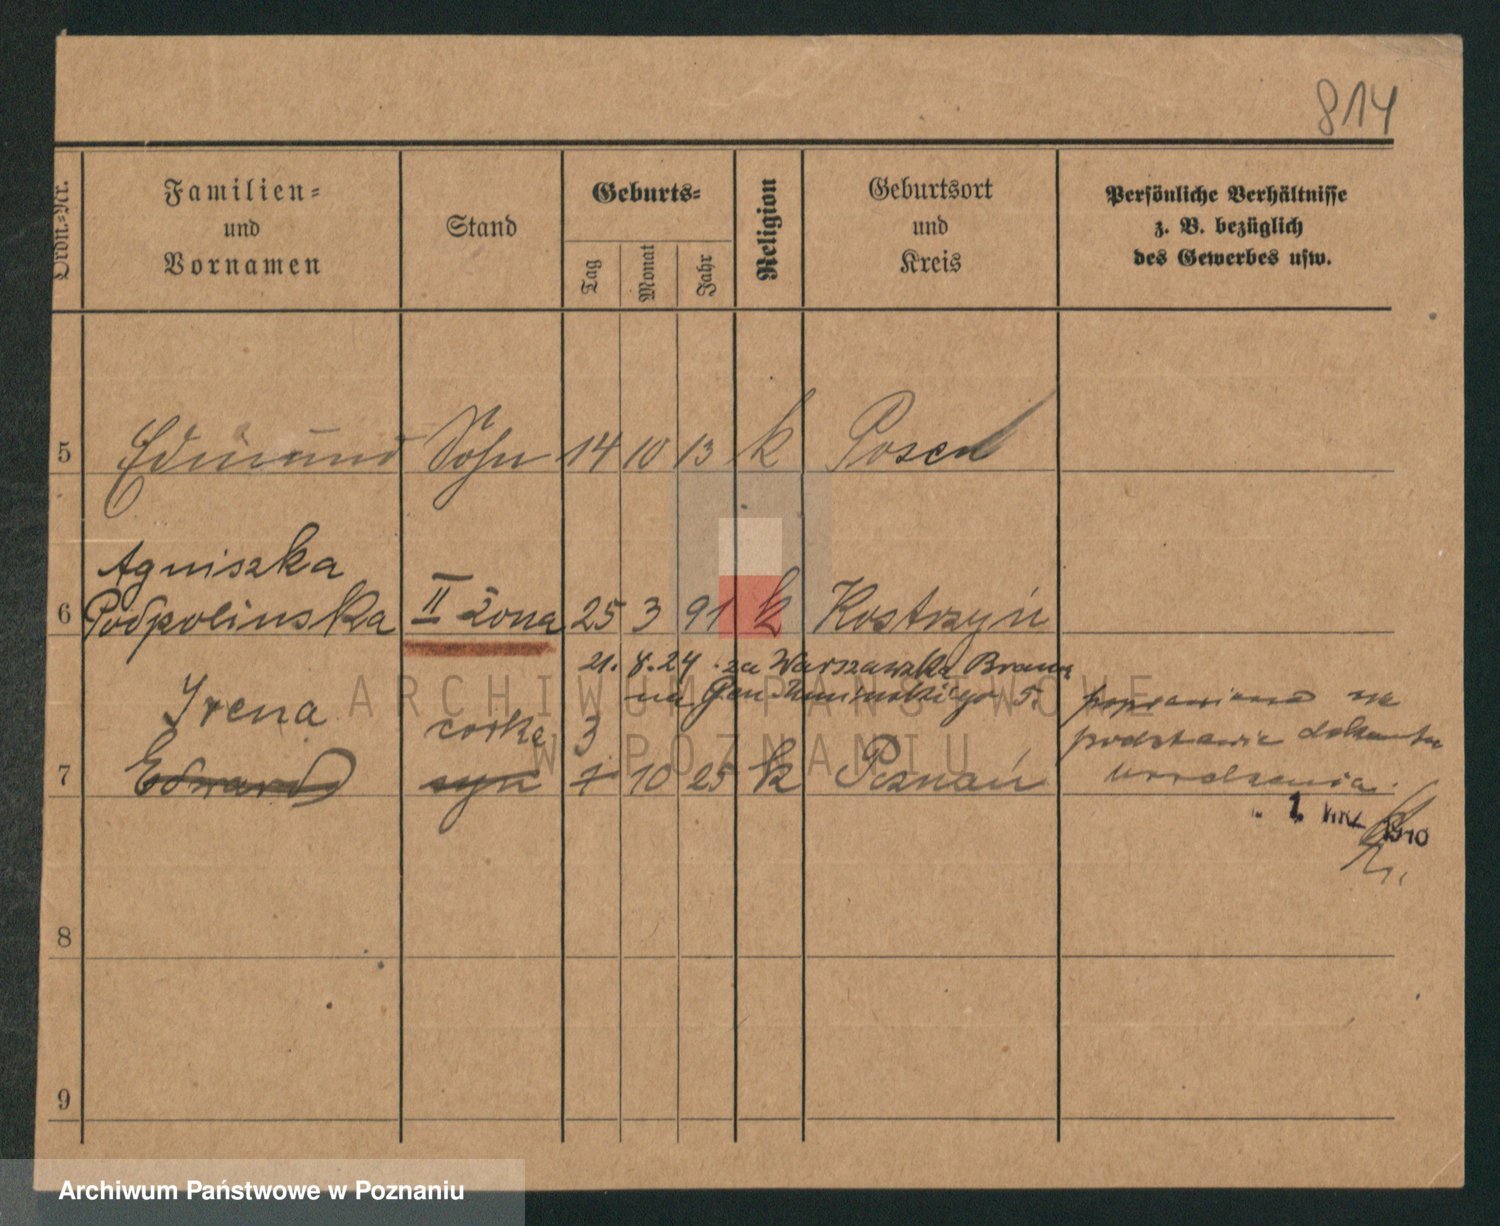 814
Ordn.=Nr.
Familien=
und
Vornamen
Stand
Geburts=
Tag
Monat
Jahr
Religion
Geburtsort
und
Kreis
Persönliche Verhältnisse
z. B. bezüglich
des Gewerbes usw.
5 Edmund Sohn 14 10 13 k Posen
Agniszka
6 Podpolinska II żona 25 3 91 k Kostrzyń
21. 8. 24 za Warszawską Bramą
na Gen. 5.
Irena córka 3
7 Edward syn 1 10 25 k Poznań
poprawiono na
podstawie dokumentu
urodzenia.
1. 1940
ARCHIWUM PAŃSTWOWE
W POZNANIU
Archiwum Państwowe w Poznaniu